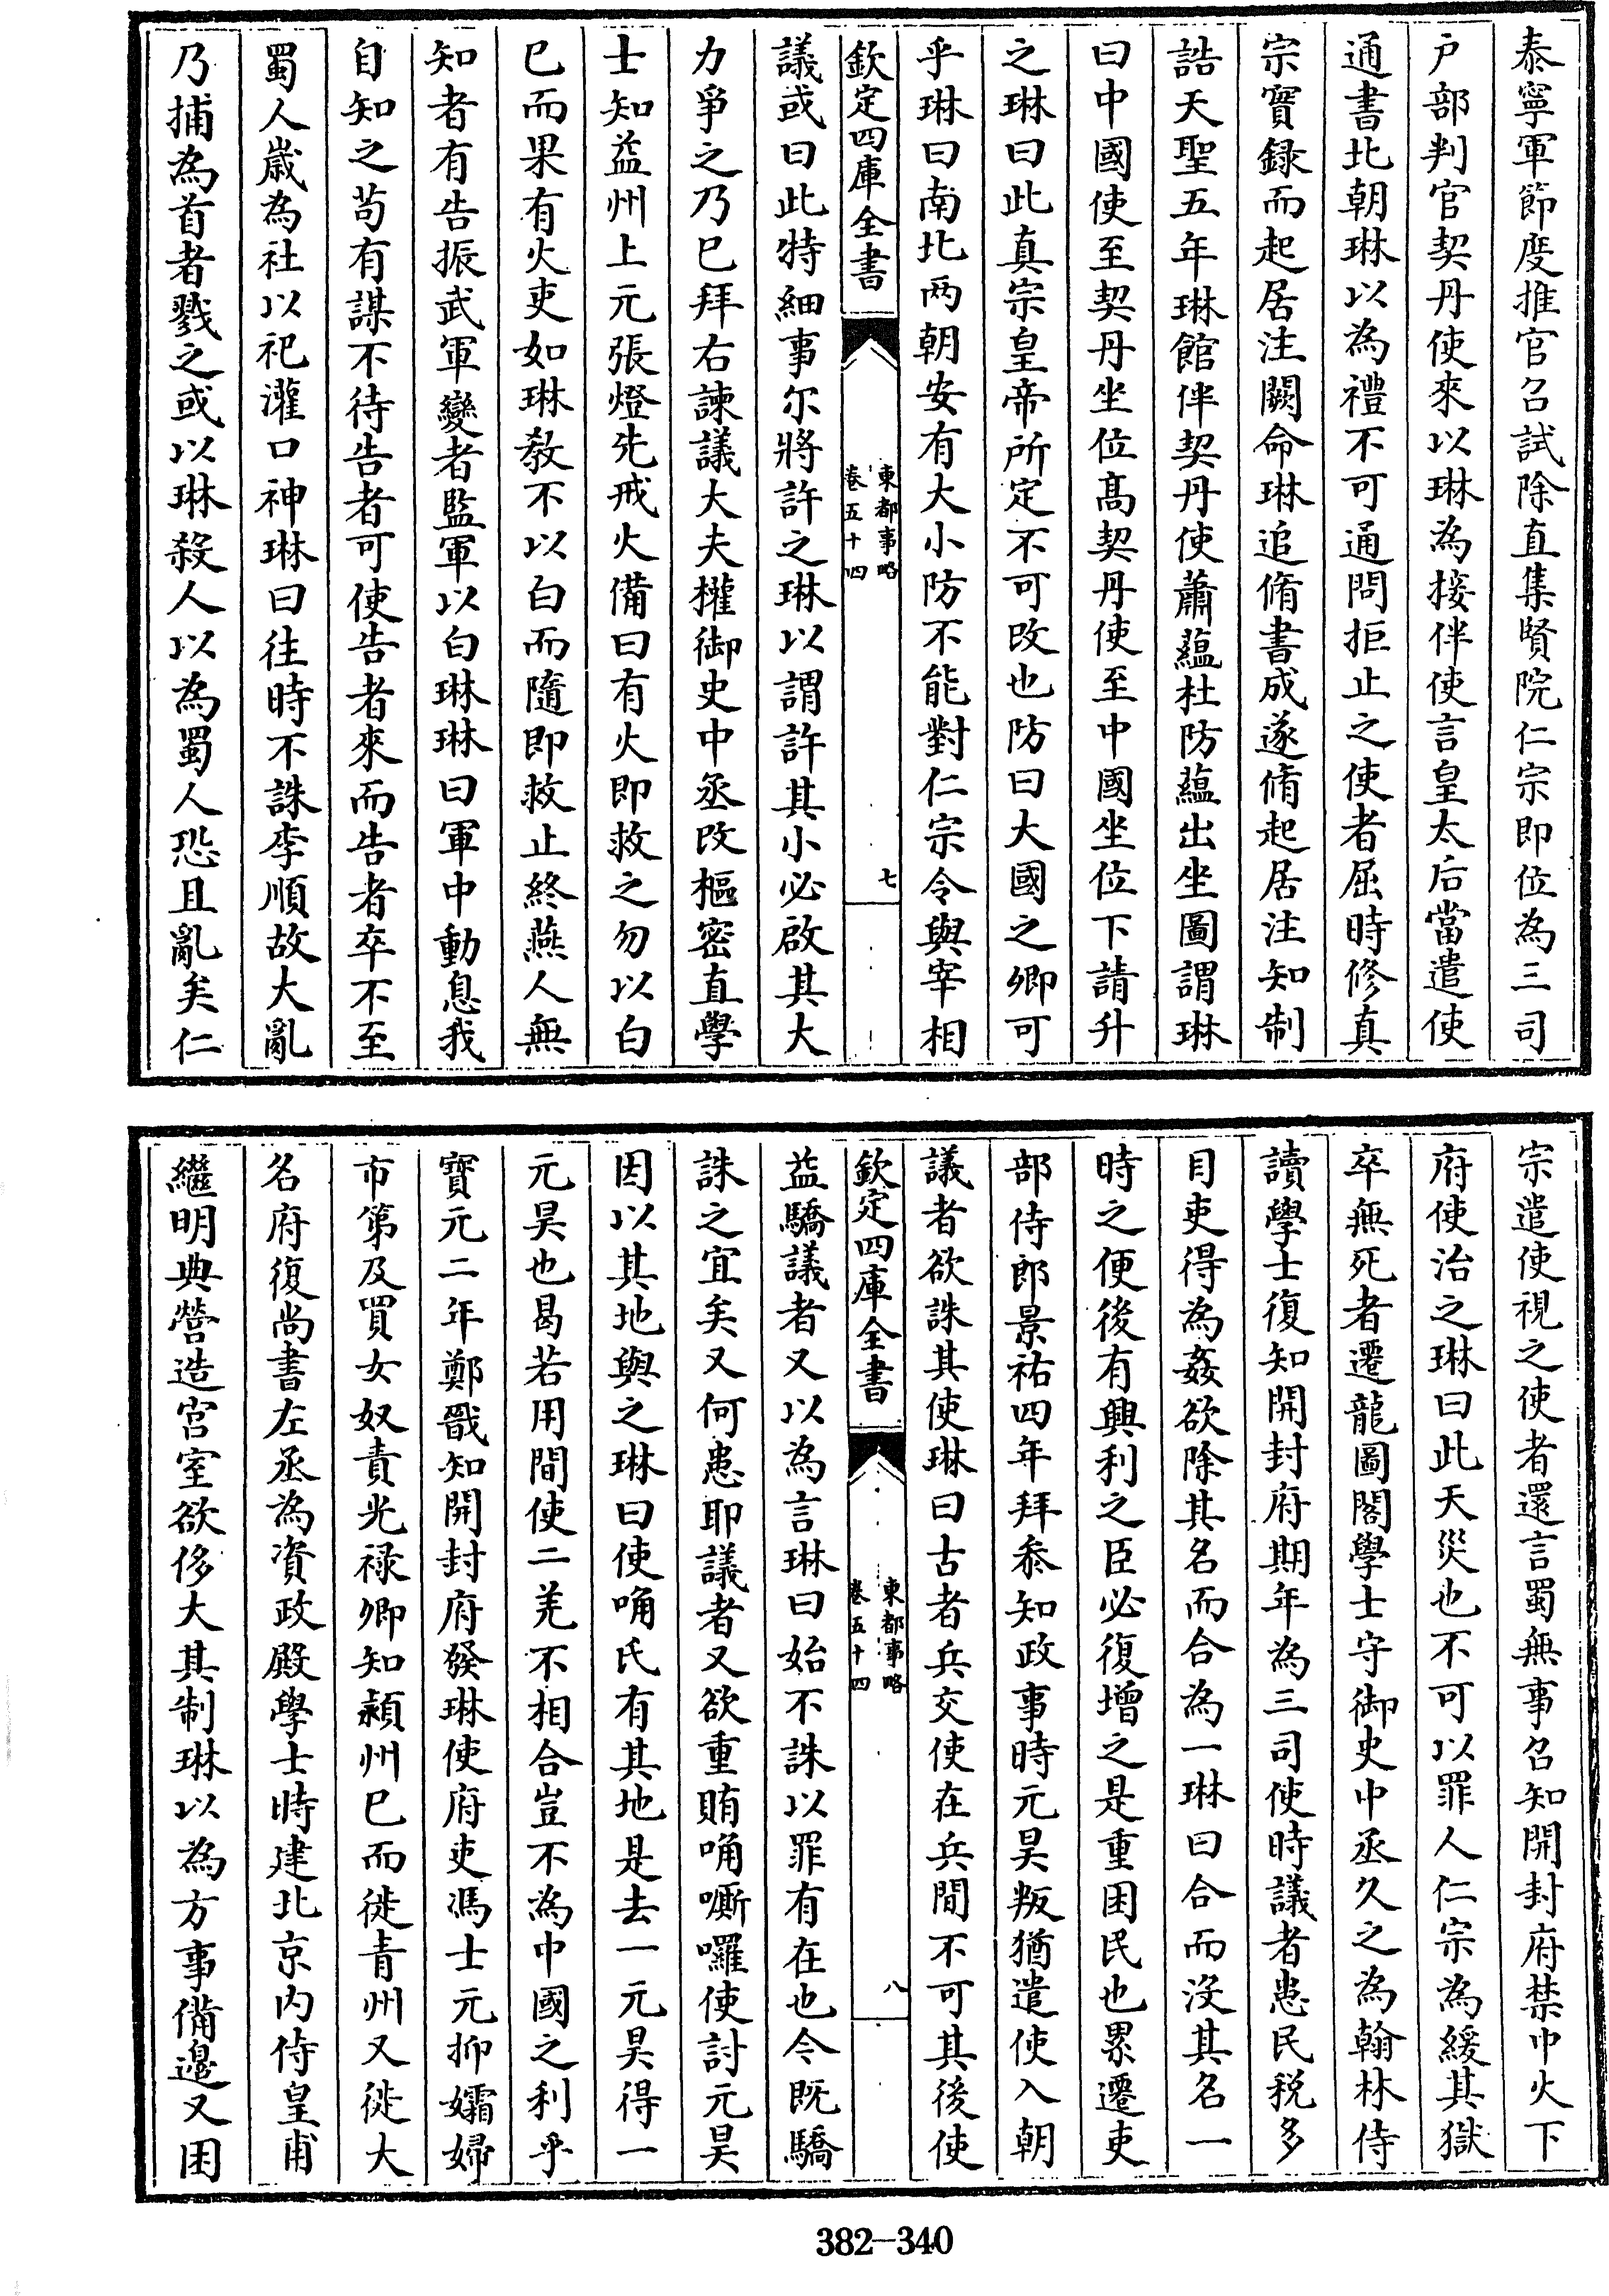 泰寧軍節度推官召試除直集賢院仁宗即位為三司
户部判官契丹使來以琳為接伴使言皇太后當遣使
通書北朝琳以為禮不可通問拒止之使者屈時修真
宗實録而起居注闕命琳追脩書成遂脩起居注知制
誥天聖五年琳館伴契丹使蕭藴杜防藴出坐圖謂琳
曰中國使至契丹坐位髙契丹使至中國坐位下請升
之琳曰此真宗皇帝所定不可改也防曰大國之卿可
乎琳曰南北两朝安有大小防不能對仁宗令與宰相
欽定四庫全書
東都事略
卷五十四
七
議或曰此特細事尔將許之琳以謂許其小必啟其大
力爭之乃已拜右諫議大夫權御史中丞改樞密直學
士知益州上元張燈先戒火備曰有火即救之勿以白
已而果有火吏如琳教不以白而隨即救止終燕人無
知者有告振武軍變者監軍以白琳琳曰軍中動息我
自知之苟有謀不待告者可使告者來而告者卒不至
蜀人歲為社以祀灌口神琳曰往時不誅李順故大亂
乃捕為首者戮之或以琳殺人以為蜀人恐且亂矣仁
宗遣使視之使者還言蜀無事召知開封府禁中火下
府使治之琳曰此天災也不可以罪人仁宗為緩其獄
卒無死者遷龍圖閣學士守御史中丞久之為翰林侍
讀學士復知開封府期年為三司使時議者患民税多
目吏得為姦欲除其名而合為一琳曰合而没其名一
時之便後有興利之臣必復增之是重困民也累遷吏
部侍郎景祐四年拜叅知政事時元昊叛猶遣使入朝
議者欲誅其使琳曰古者兵交使在兵間不可其後使
欽定四庫全書
東都事略
卷五十四
八
益驕議者又以為言琳曰始不誅以罪有在也今既驕
誅之宜矣又何患耶議者又欲重賄唃嘶囉使討元昊
因以其地與之琳曰使唃氏有其地是去一元昊得一
元昊也曷若用間使二羌不相合豈不為中國之利乎
寳元二年鄭戩知開封府發琳使府吏馮士元抑孀婦
市第及買女奴責光禄卿知潁州已而徙青州又徙大
名府復尚書左丞為資政殿學士時建北京内侍皇甫
繼明典營造宫室欲侈大其制琳以為方事備邉又困
382—340